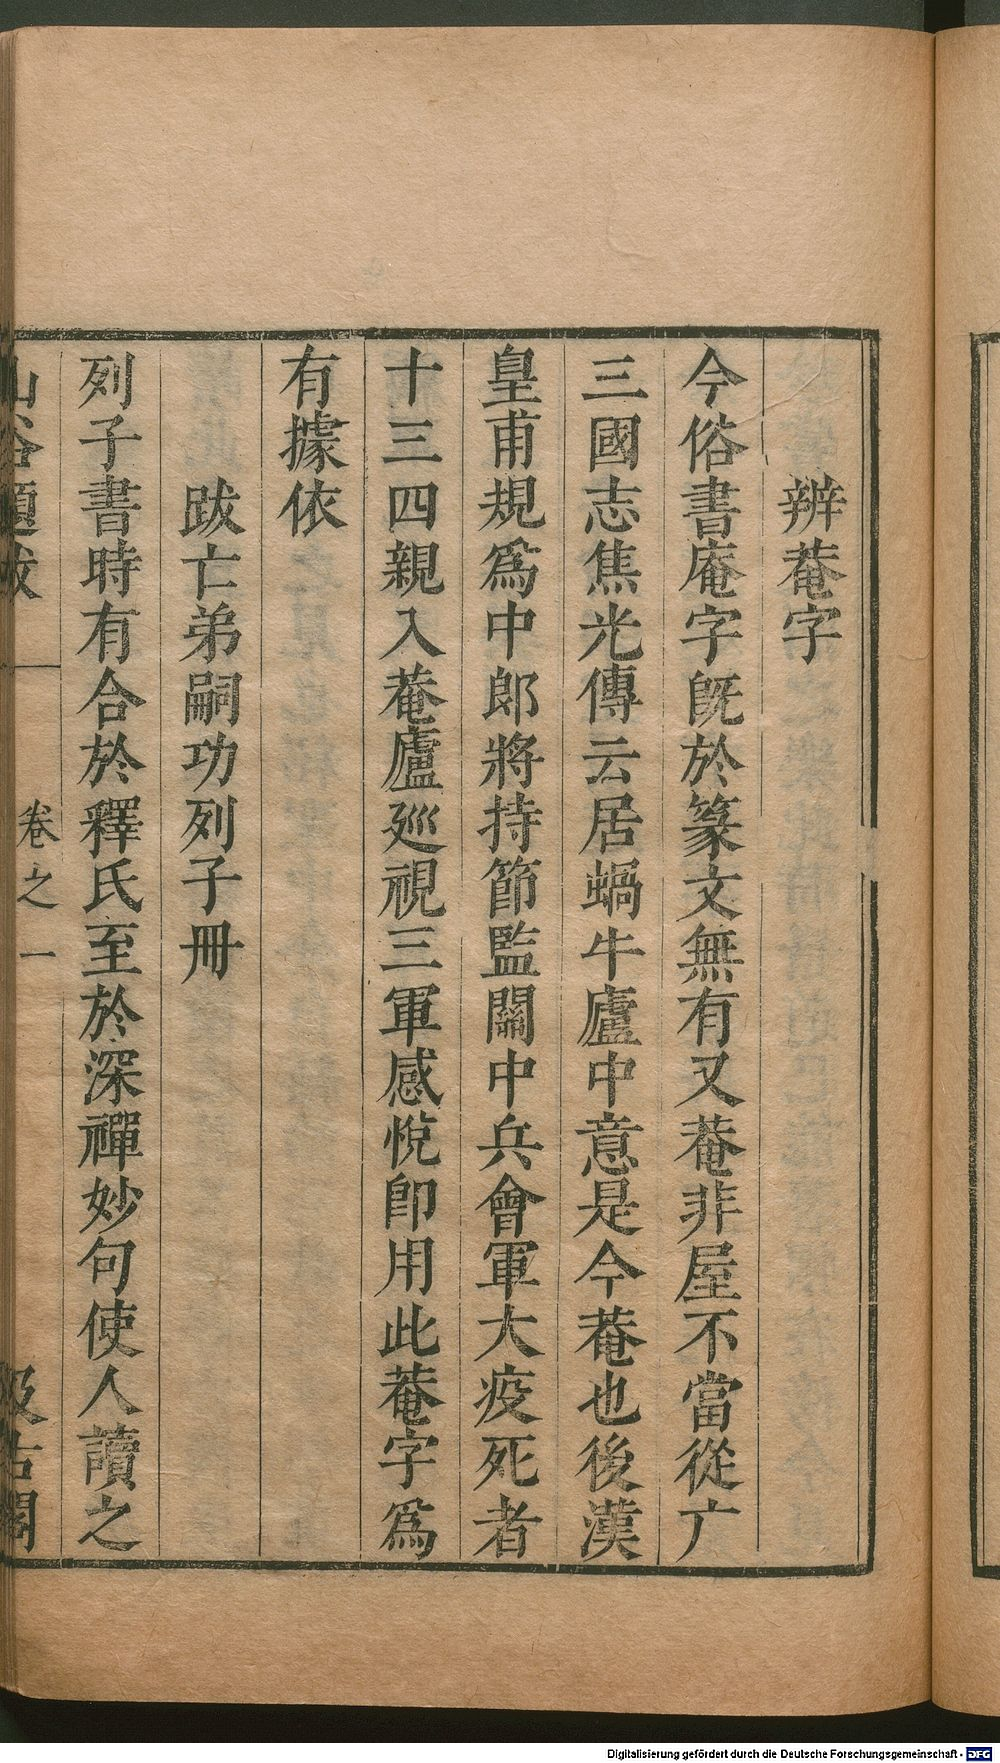 辨菴字
今俗書庵字旣於篆文無有又菴非屋不當從广
三國志焦光傳云居蝸牛廬中意是今菴也後漢
皇甫規爲中郎將持節監關中兵會軍大疫死者
十三四親入菴廬廵視三軍感悅卽用此菴字爲
有據依
跋亡弟嗣功列子冊
列子書時有合於釋氏至於深禪妙句使人讀之
山谷題跋 卷之一 汲古閣
Digitalisierung gefördert durch die Deutsche Forschungsgemeinschaft - DFG